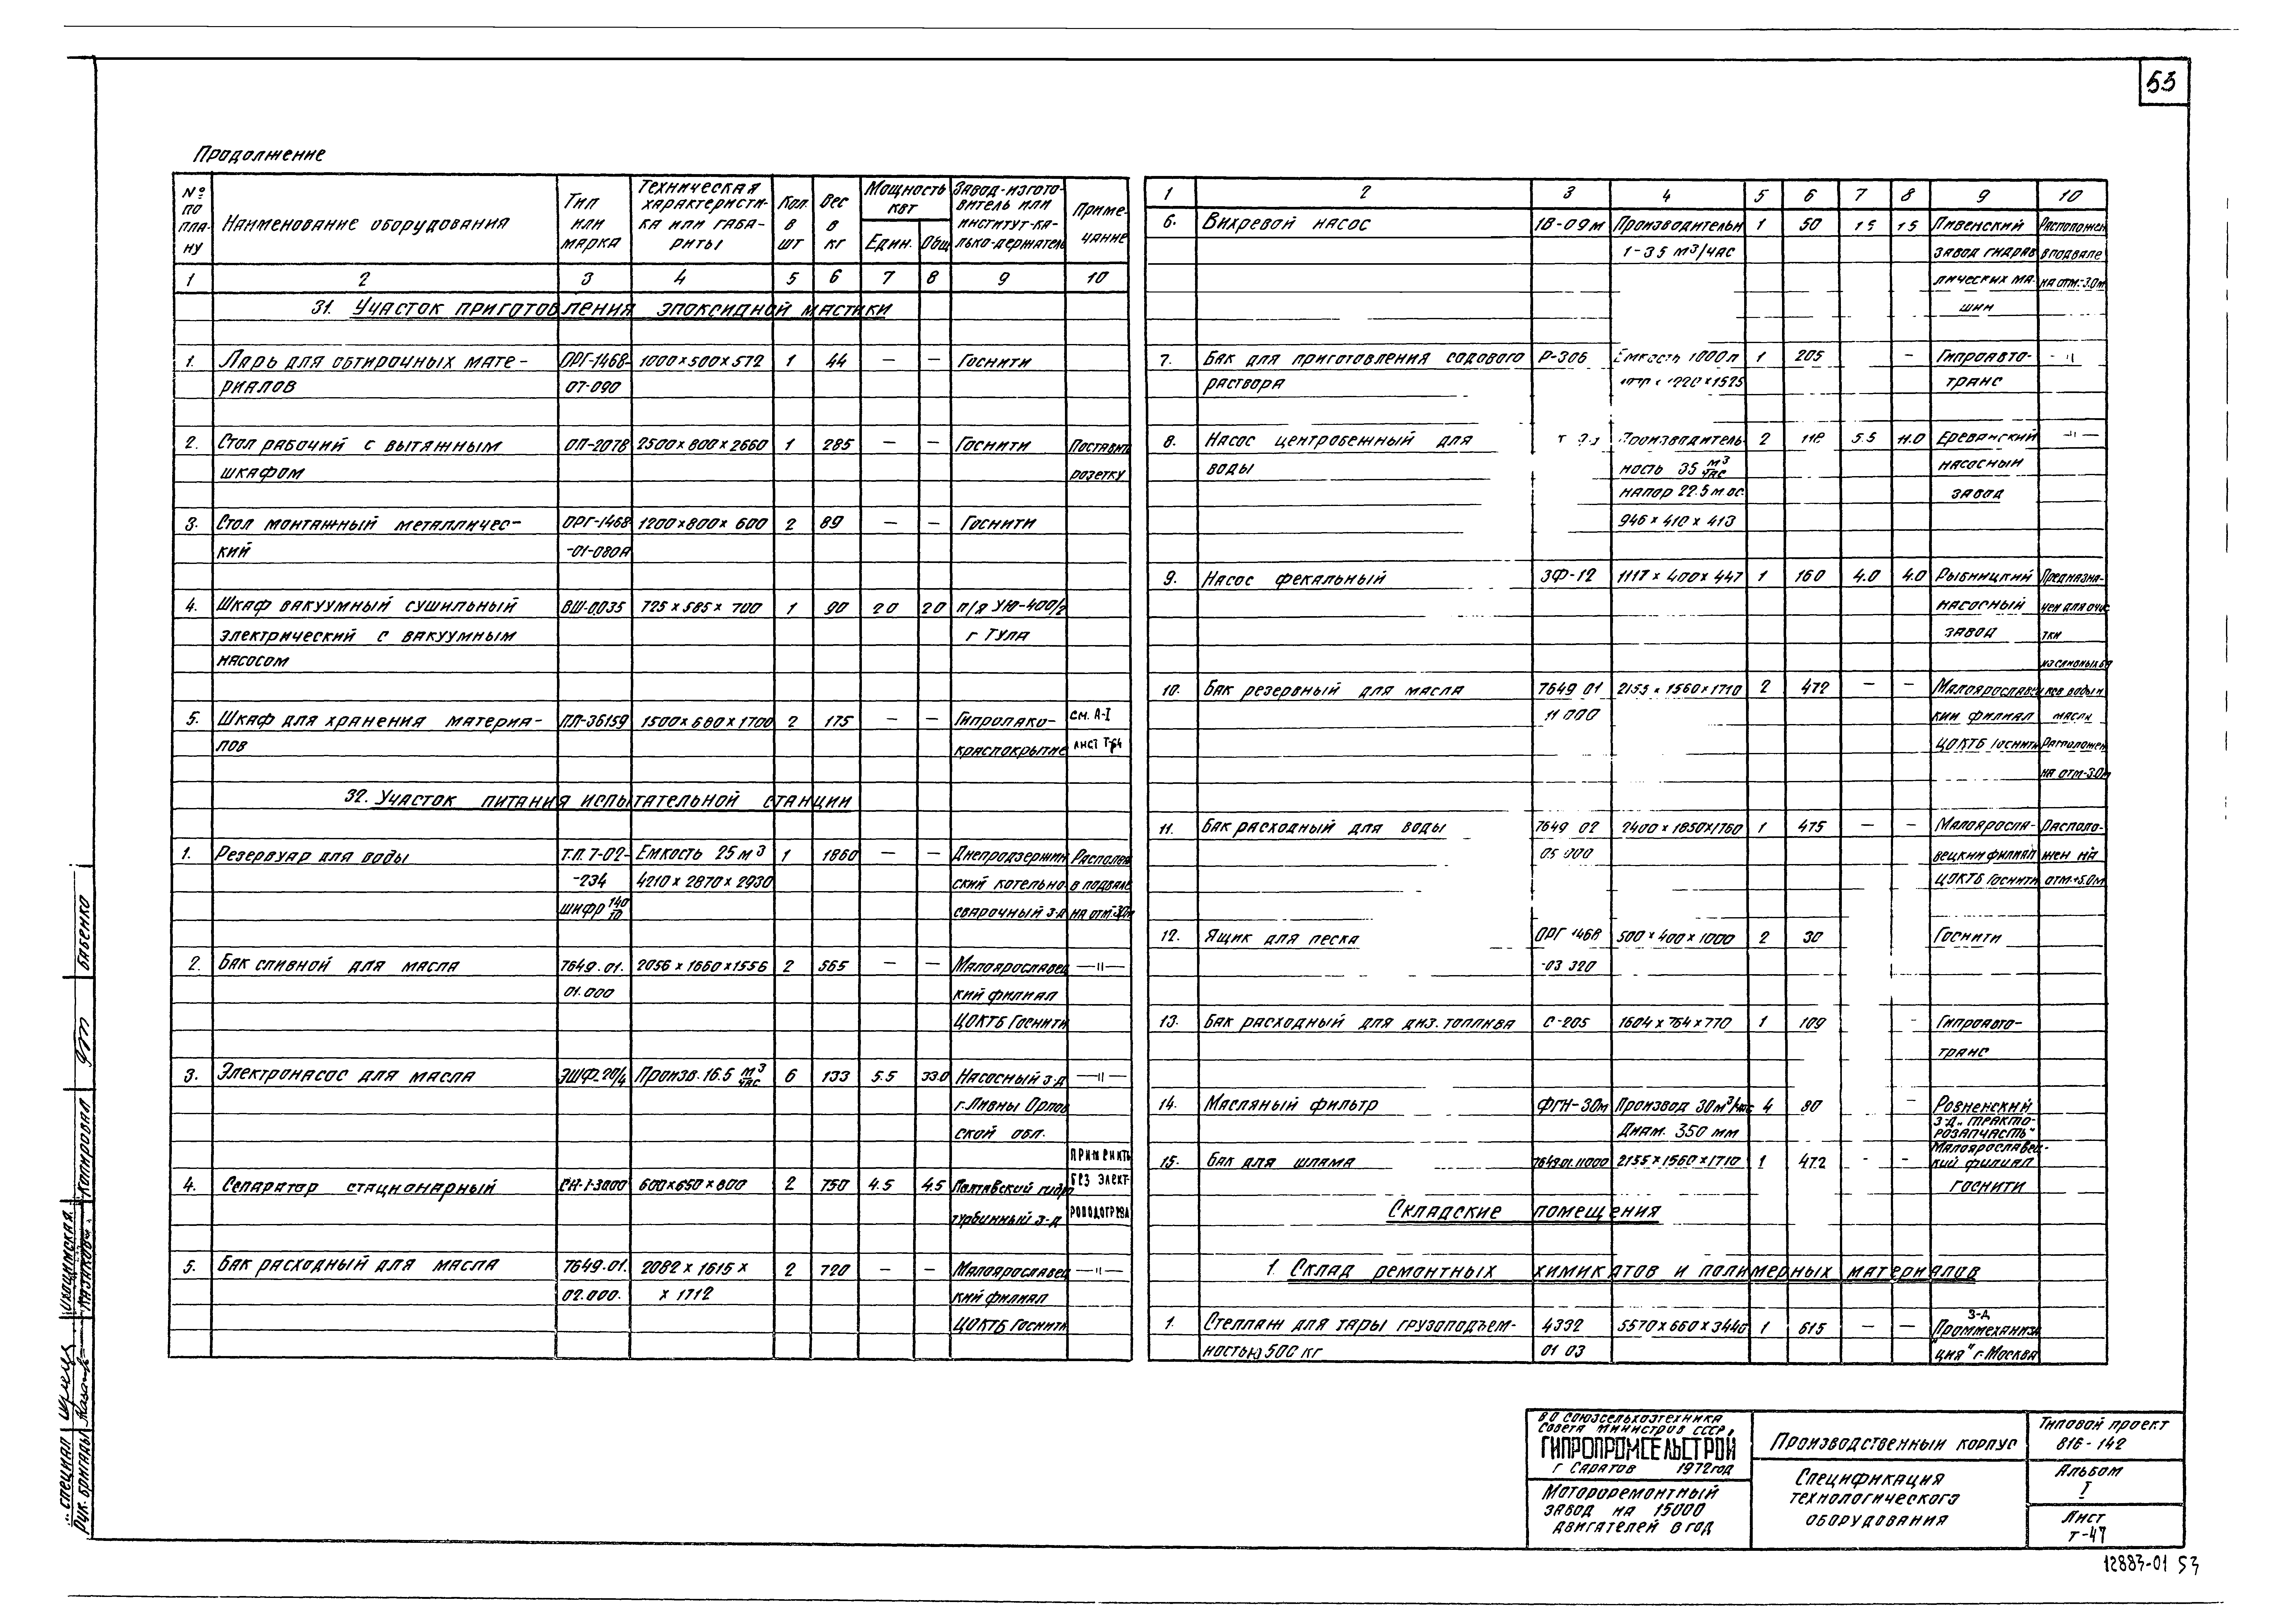 53
Продолжение
№ по плану | Наименование оборудования | Тип или марка | Техническая характеристика или габариты | Кол. в шт | Вес в кг | Мощность квт Един. Общ | Завод-изготовитель или институт-калькодержатель | Примечание
1 2 3 4 5 6 7 8 9 10
31. Участок приготовления эпоксидной мастики
1. Ларь для обтирочных мате- ОРГ-1468- 1000×500×572 1 44 — — Госнити
риалов 07-090
2. Стол рабочий с вытяжным ОП-2078 2500×800×2660 1 285 — — Госнити Поставить
шкафом розетку
3. Стол монтажный металличес- ОРГ-1468 1200×800×600 2 89 — — Госнити
кий -01-080А
4. Шкаф вакуумный сушильный ВШ-0,035 725×585×700 1 90 20 20 п/я УЮ-400/2
электрический с вакуумным г Тула
насосом
5. Шкаф для хранения материа- ПЛ-36159 1500×680×1700 2 175 — — Гипролако- см. А-I
лов краспокрытие лист Т-64
32. Участок питания испытательной станции
1. Резервуар для воды Т.П. 7-02- Емкость 25 м³ 1 1860 — — Днепродзержин Располож
-234 4210×2870×2930 ский котельно- в подвале
шифр 140/10 сварочный з-д на отм-3.0м
2. Бак сливной для масла 7649.01. 2056×1660×1556 2 565 — — Малоярославец —"—
01.000 кий филиал
ЦОКТБ Госнити
3. Электронасос для масла ЭШФ-20/4 Произв. 16.5 м³/час 6 133 5.5 33.0 Насосный з-д —"—
г. Ливны Орлов
ской обл.
применить
4. Сепаратор стационарный СН-1-3000 600×650×800 2 750 4.5 4.5 Полтавский гидро без элект-
турбинный з-д роподогрева
5. Бак расходный для масла 7649.01. 2082×1615× 2 720 — — Малоярославец —"—
02.000. ×1712 кий филиал
ЦОКТБ Госнити
1 2 3 4 5 6 7 8 9 10
6. Вихревой насос 1В-09м Производительн 1 50 15 15 Ливенский Расположен
1-35 м³/час завод гидрав в подвале
лических ма- на отм.-3.0м
шин
7. Бак для приготовления содового Р-306 Емкость 1000л 1 205 — Гипроавто- -"
раствора 1220×1525 транс
8. Насос центробежный для Производитель- 2 118 5.5 11.0 Ереванский —"—
воды ность 35 м³/час насосный
напор 22.5 м.вс завод
946×410×413
9. Насос фекальный 3Ф-12 1117×400×447 1 160 4.0 4.0 Рыбницкий Предназна-
насосный чен для очис
завод тки
из сливных ба
10. Бак резервный для масла 7649 01 2155×1560×1710 2 472 — — Малоярославец ков воды и
11 000 кий филиал масла
ЦОКТБ Госнити Расположен
на отм-3.0м
11. Бак расходный для воды 7649 02 2400×1850×1760 1 475 — — Малояросла- Располо-
05 000 вецкий филиал жен на
ЦОКТБ Госнити отм.+5.0м
12. Ящик для песка ОРГ 1468 500×400×1000 2 30 Госнити
-03 320
13. Бак расходный для диз. топлива С-205 1604×764×770 1 109 - Гипроавто-
транс
14. Масляный фильтр ФГН-30м Производ 30 м³/час 4 80 - Ровненский
Диам. 350 мм з-д „Тракто-
розапчасть"
15. Бак для шлама 7649.01.11000 2155×1560×1710 1 472 - - Малоярославец-
кий филиал
Госнити
Складские помещения
1 Склад ремонтных химикатов и полимерных материалов
1. Стеллаж для тары грузоподъем- 4332 5570×660×3440 1 615 — — з-д
ностью 500 кг 01 03 „Проммеханиза
ция" г. Москва
ВО Союзсельхозтехника
Совета Министров СССР,
ГИПРОПРОМСЕЛЬСТРОЙ
г Саратов 1972 год
Мотороремонтный
завод на 15000
двигателей в год
Производственный корпус
Спецификация
технологического
оборудования
Типовой проект
816-142
Альбом
I
Лист
Т-47
12883-01 53
Специал
Рук. бригады
Казакова
Копировал
Бабенко